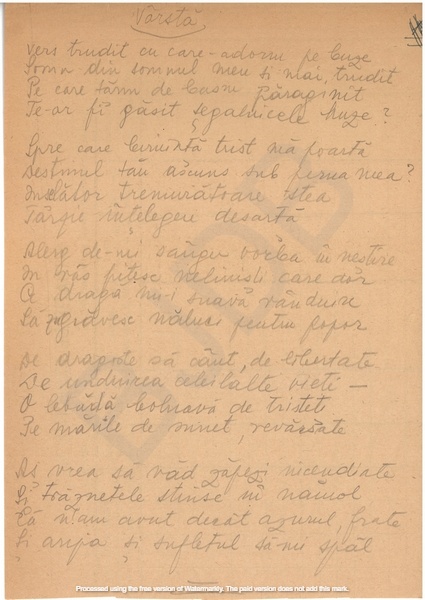 Vârstă
Vers trudit cu care-adorm pe buze
Somn din somnul meu si mai trudit
Pe care tărm de basm părăginit
Te-ar fi găsit segalnicele Muze?
Spre care biruintă trist mă poartă
Destinul tău ascuns sub perna mea?
Înselător tremurătoare stea
Târzie întelegere desartă
Alerg de-mi sânger vorba în nestire
În văs nelinisti care dor
Ce dragă mi-i suavă
Să năluci pentru popor
De dragoste să cânt, de libertate
De unduirea celeilalte vieti —
O lebădă bolnavă de tristeti
Pe mările de sunet, revărsate
As vrea să văd zăpezi incendiate
Si trăznetele stinse în nămol
Că n-am avut decât azurul, frate
Si aripa si sufletul să-mi spăl
Processed using the free version of Watermarkly. The paid version does not add this mark.